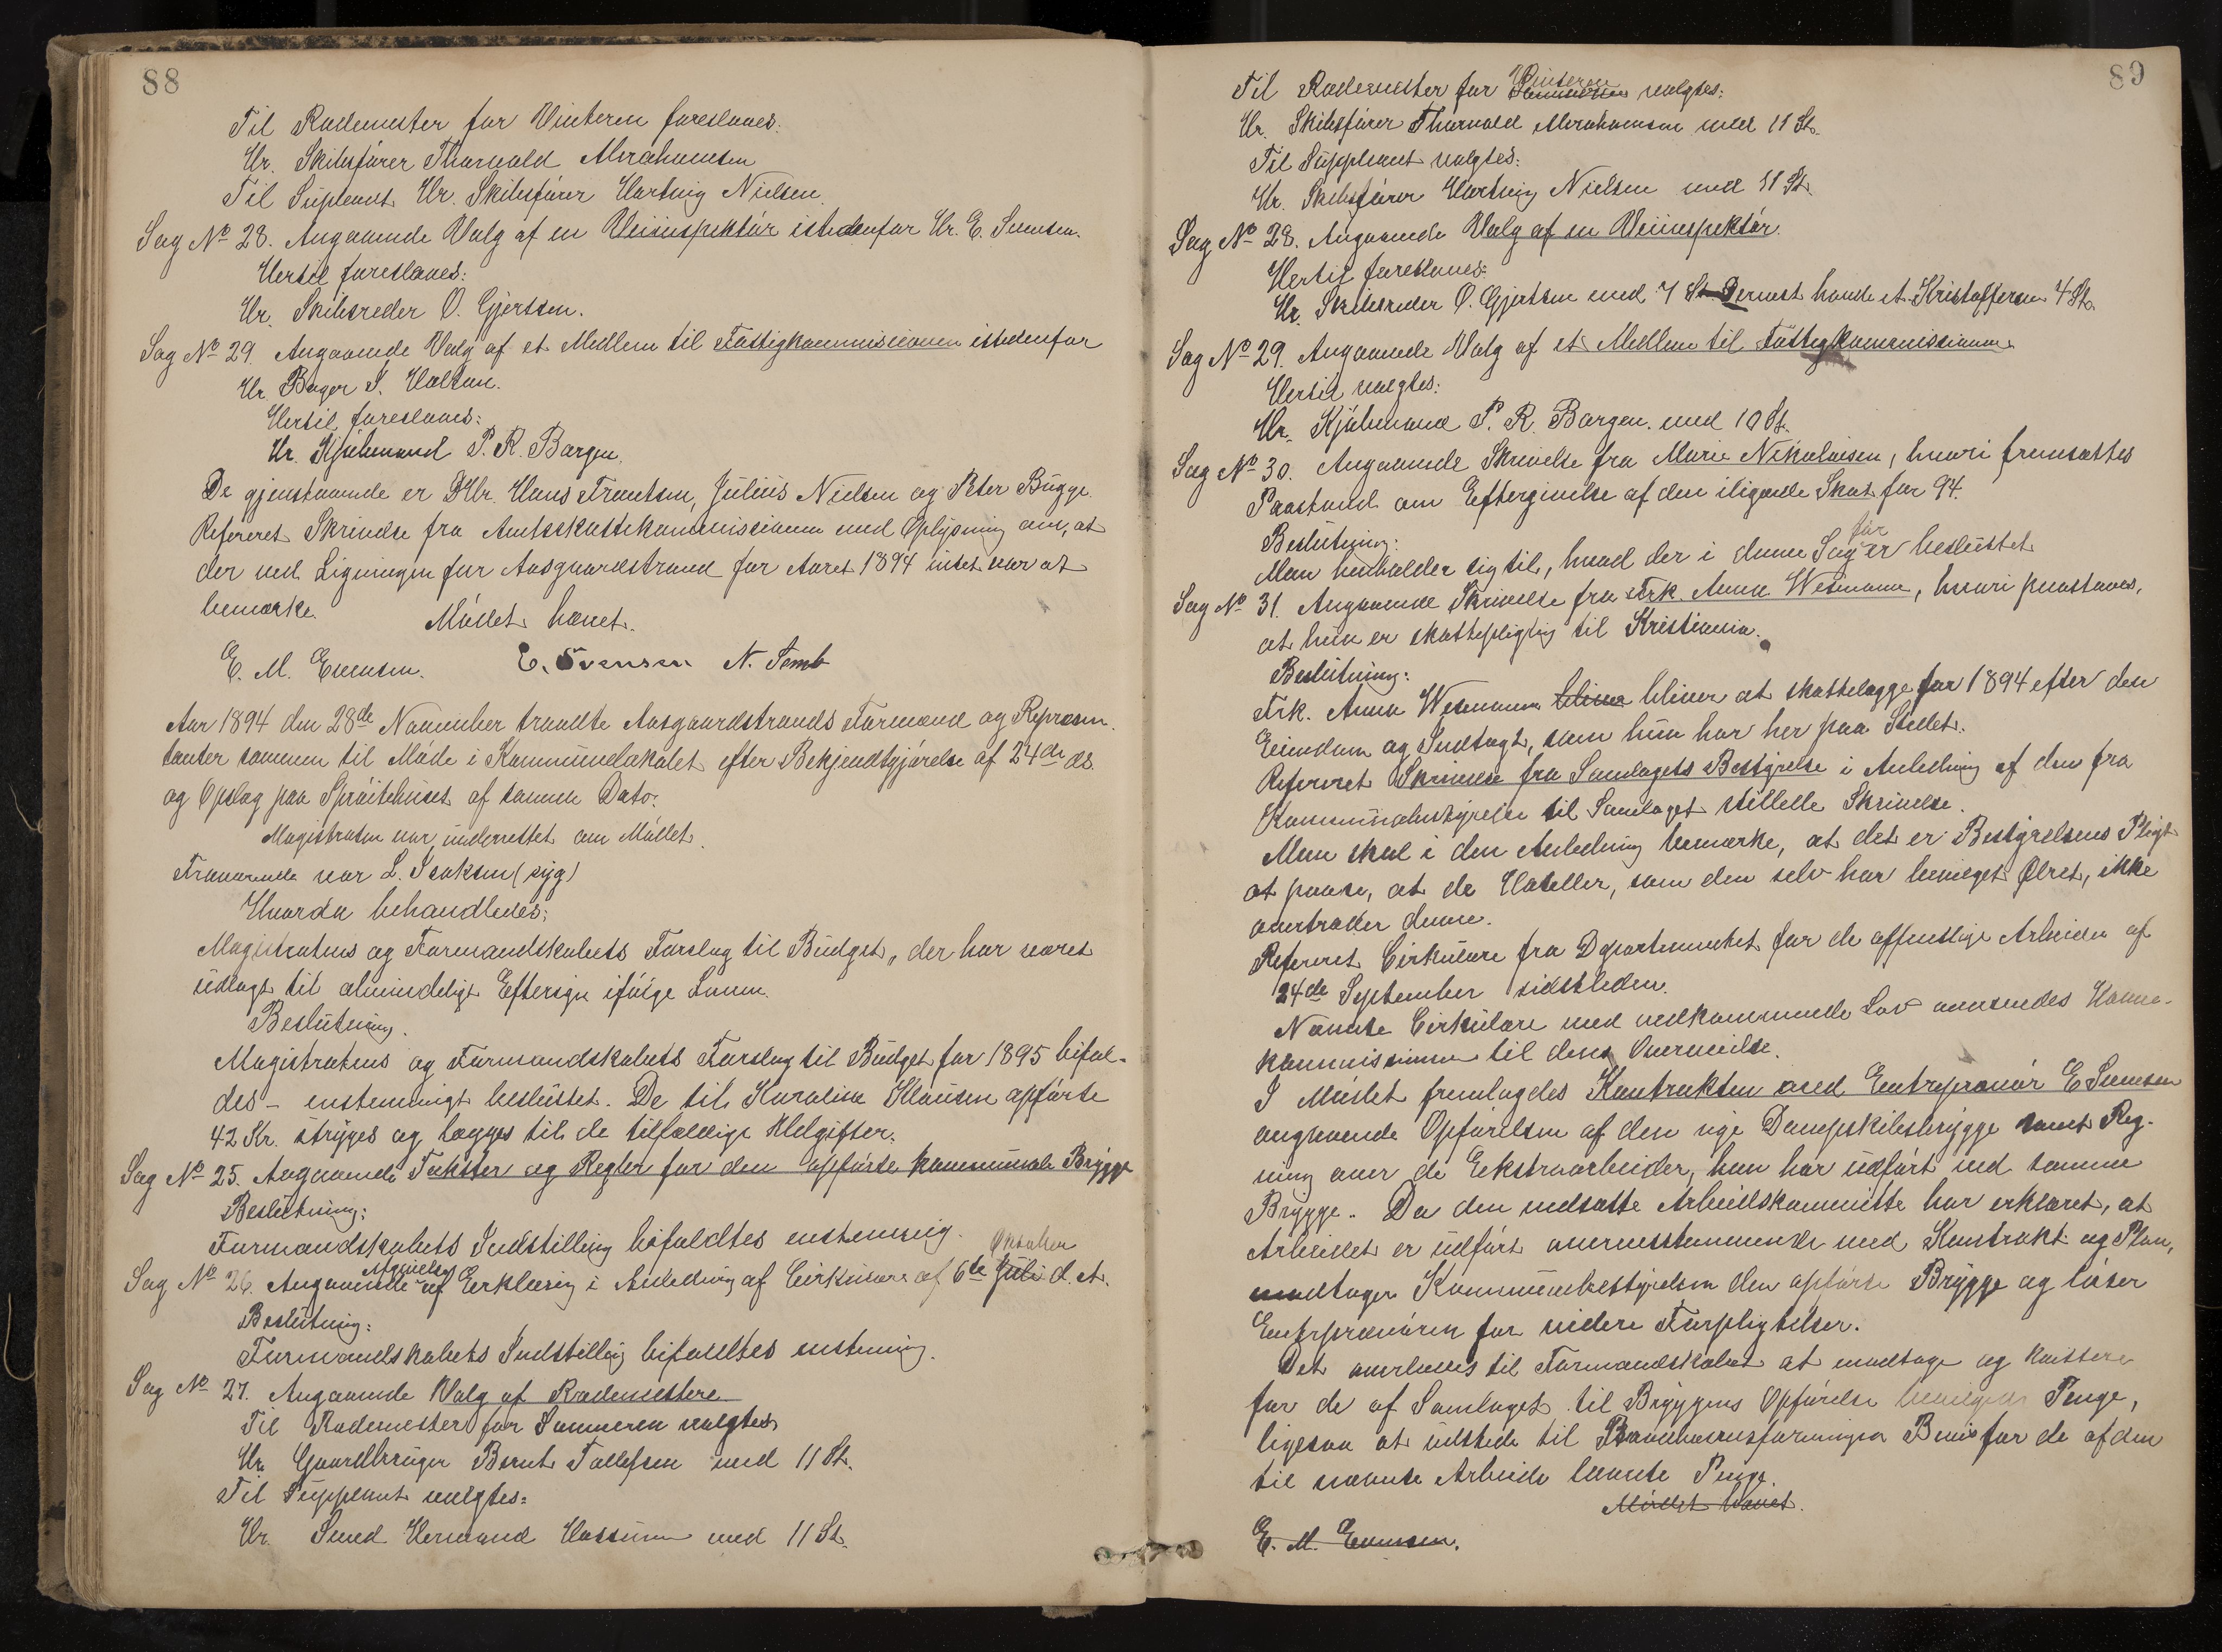 88
Til Rodemester for Vinteren foresloges:
Hr. Skibsfører Thorvald Abrahamsen
Til Supleant Hr. Skibsfører Hartvig Nielsen.
Sag No 28. Angaaende Valg af en Veiinspektør istedenfor Hr. E. Svensen.
Hertil foresloges:
Hr. Skibsreder O. Gjertsen.
Sag No 29. Angaaende Valg af et Medlem til Fattigkommissionen istedenfor
Hr. Bager S. Halsan.
Hertil foresloges:
Hr. Kjøbmand P. R. Borgen.
De gjenstaaende er DHr. Hans Frantsen, Julius Nielsen og Peter Bugge.
Refereret Skrivelse fra Amtsskattekommissionen med Oplysning om, at
der ved Ligningen for Aasgaardstrand for Aaret 1894 intet var at
bemærke.
Mødet hævet.
E. M. Evensen. E. Svensen N. Semb
Aar 1894 den 28de November traadte Aasgaardstrands Formænd og Repræsen-
tanter sammen til Møde i Kommunelokalet efter Bekjendtgjørelse af 24de ds.
og Opslag paa Sprøitehuset af samme Dato.
Magistraten var underrettet om Mødet.
Fraværende var L. Isaksen (syg)
Hvorda behandledes:
Magistratens og Formandskabets Forslag til Budget, der har været
udlagt til almindeligt Eftersyn ifølge Loven.
Beslutning.
Magistratens og Formandskabets Forslag til Budget for 1895 bifal-
des - enstemmigt besluttet. De til Karoline Klausen opførte
42 Kr. stryges og lægges til de tilfældige Udgifter.
Sag No 25. Angaaende Takster og Regler for den opførte kommunale Brygge
Beslutning:
Formandskabets Indstilling bifaldtes enstemmig.
Oktober
Sag No 26. Angaaende Afgivelse af Erklæring i Anledning af Cirkulære af 6te Juli d. A.
Beslutning:
Formandskabets Indstilling bifaldtes enstemmig.
Sag No 27. Angaaende Valg af Rodemestere
Til Rodemester for Sommeren valgtes
Hr. Gaardbruger Bernt Tollefsen med 11 St.
Til Suppleant valgtes:
Hr. Smed Hermand Hassum med 11 St.
89
Til Rodemester for Sommeren Vinteren valgtes:
Hr. Skibsfører Thorvald Abrahamsen med 11 St.
Til Suppleant valgtes:
Hr. Skibsfører Hartvig Nielsen med 11 St.
Sag No 28. Angaaende Valg af en Veiinspektør.
Hertil foresloges:
Hr. Skibsreder O. Gjertsen med 7 St. Dernest havde et. Kristoffersen 4 St.
Sag No 29. Angaaende Valg af et Medlem til Fattigkommissionen
Hertil valgtes:
Hr. Kjøbmand P. R. Borgen. med 10 St.
Sag No 30. Angaaende Skrivelse fra Marie Nikolaisen, hvori fremsættes
Paastand om Eftergivelse af den iligнede Skat for 94.
Beslutning:
Man henholder sig til, hvad der i denne Sag før er besluttet
Sag No 31. Angaaende Skrivelse fra Frk. Anna Wesmann, hvori paastaaes,
at hun er skattepligtig til Kristiania.
Beslutning:
Frk. Anna Wesmann bliver bliver at skattelægge for 1894 efter den
Eiendom og Indtægt, som hun har her paa Stedet.
Refereret Skrivelse fra Samlagets Bestyrelse i Anledning af den fra
Kommunebestyrelse til Samlaget stillede Skrivelse.
Man skal i den Anledning bemærke, at det er Bestyrelsens Pligt
at paase, at de Hoteller, som den selv har bevilget Ølret, ikke
overtræder denne.
Refereret Cirkulære fra Departementet for de offentlige Arbeider af
24de September sidstleden.
Nævnte Cirkulære med vedkommende Lov oversendes Havne-
kommissionen til dens Overveielse.
I Mødet fremlagdes Kontrakten med Entreprenør E Svensen
angaaende Opførelsen af den nye Dampskibsbrygge samt Reg-
ning over de Eekstraarbeider, han har udført ved samme
Brygge. Da den nedsatte Arbeidskomitte har erklæret, at
Arbeidet er udført overensstemmende med Kontrakt og Plan,
modtager Kommunebestyrelsen den opførte Brygge og løser
Entreprenøren for videre Forpligtelser.
Det overlodes til Formandskabet at modtage og kvittere
for de af Samlaget til Bryggens Opførelse bevilgede Penge,
ligesaa at udstede til Brændevinsforeningen Bevis for de af den
til nævnte Arbeide laante Penge.
Mødet hævet.
E. M. Evensen.